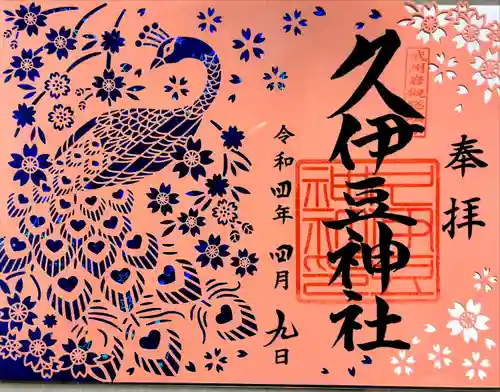 奉拝
久伊豆神社
令和四年 四月 九日